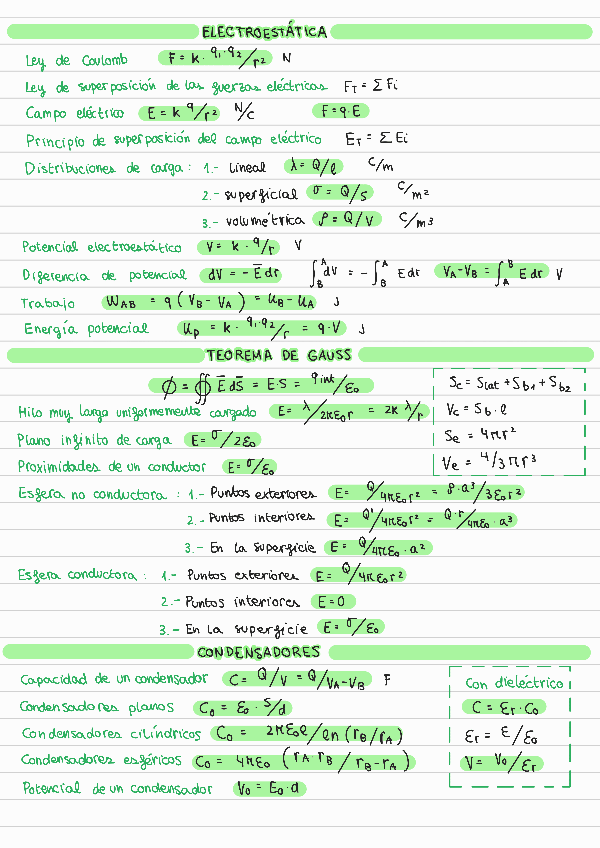 ELECTROESTÁTICA
Ley de Coulomb F = k · q₁·q₂/r² N
Ley de superposición de las fuerzas eléctricas F_T = Σ Fi
Campo eléctrico E = k q/r² N/C F = q·E
Principio de superposición del campo eléctrico E_T = Σ Ei
Distribuciones de carga: 1.- Lineal λ = Q/ℓ C/m
2.- superficial σ = Q/S C/m²
3.- volumétrica ρ = Q/V C/m³
Potencial electroestático V = k · q/r V
Diferencia de potencial dV = - E̅ dr ∫_B^A dV = - ∫_B^A E dr V_A - V_B = ∫_A^B E dr V
Trabajo W_AB = q (V_B - V_A) = U_B - U_A J
Energía potencial U_p = k · q₁·q₂/r = q·V J
TEOREMA DE GAUSS
ϕ = ∯ E̅ dS̅ = E·S = q int/ε₀
Hilo muy largo uniformemente cargado E = λ/2πε₀r = 2k λ/r
Plano infinito de carga E = σ/2ε₀
Proximidades de un conductor E = σ/ε₀
S_c = S_lat + S_b1 + S_b2
V_c = S_b · ℓ
S_e = 4πr²
V_e = 4/3 πr³
Esfera no conductora: 1.- Puntos exteriores E = Q/4πε₀r² = ρ·a³/3ε₀r²
2.- Puntos interiores E = Q'/4πε₀r² = Q·r/4πε₀·a³
3.- En la superficie E = Q/4πε₀·a²
Esfera conductora: 1.- Puntos exteriores E = Q/4πε₀r²
2.- Puntos interiores E = 0
3.- En la superficie E = σ/ε₀
CONDENSADORES
Capacidad de un condensador C = Q/V = Q/V_A-V_B F
Condensadores planos C₀ = ε₀ · S/d
Condensadores cilíndricos C₀ = 2πε₀ℓ/ln (r_B/r_A)
Condensadores esféricos C₀ = 4πε₀ (r_A r_B / r_B - r_A)
Potencial de un condensador V₀ = E₀·d
Con dieléctrico
C = εr · C₀
εr = ε/ε₀
V = V₀/εr